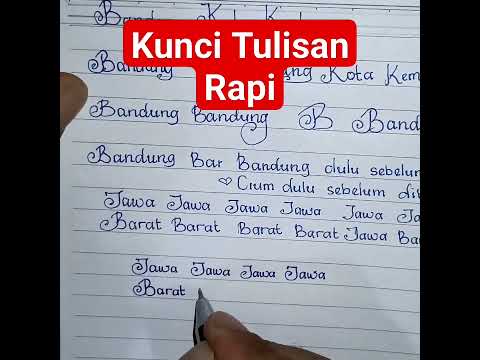 Kunci Tulisan
Rapi
Bandung
Bandung Kota Kem
Bandung Bandung B Band
Bandung Bar Bandung dulu sebelum
♡ Cium dulu sebelum di
Jawa Jawa Jawa Jawa Jawa Ja
Barat Barat Barat Barat Jawa Ba
Jawa Jawa Jawa Jawa
Barat